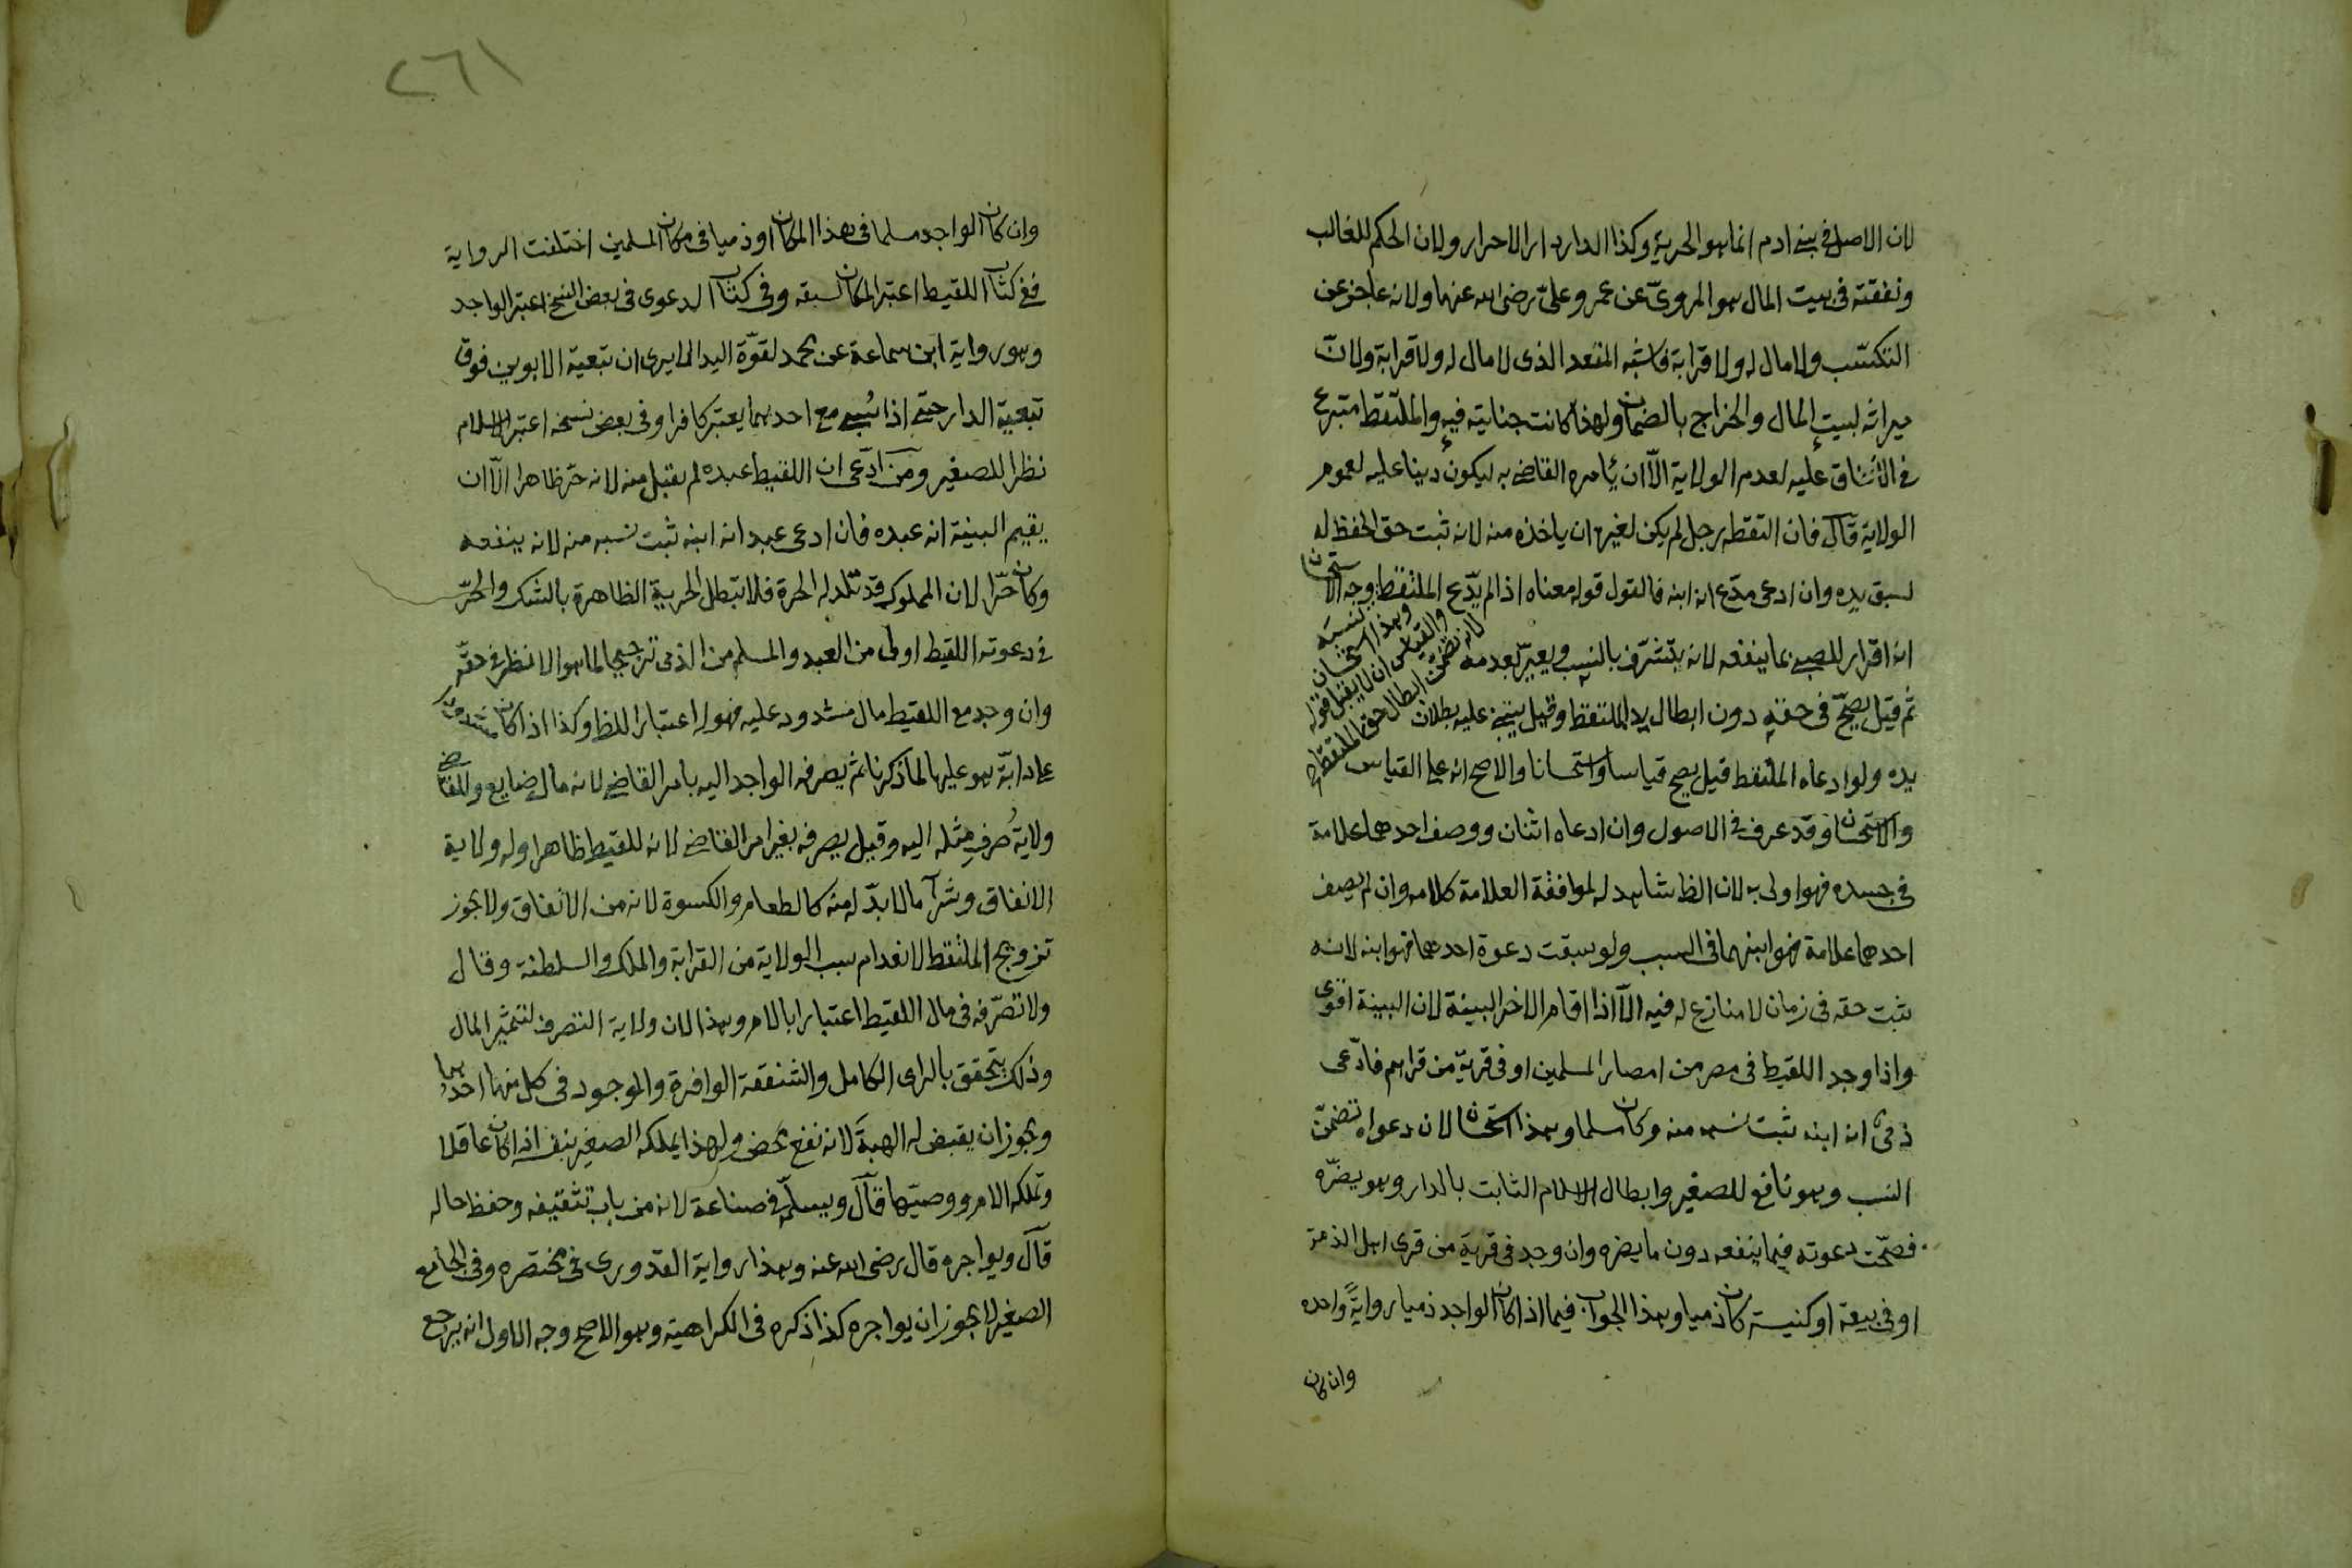 لان الاصل في بنى ادم انما هو الحرية وكذا الدار دار الاحرار ولان الحكم للغالب
ونفقته فى بيت المال هو المروىّ عن عمر وعلىّ رضى الله عنهما ولانه عاجز عن
التكسّب ولا مال له ولا قرابة فاشبه المقعد الذى لا مال له ولا قرابة ولانّ
ميراثه لبيت المال والخراج بالضمان ولهذا كانت جنايته فيه والملتقط متبرع
فى الانفاق عليه لعدم الولاية الّا ان يأمره القاضى به ليكون دينا عليه لعموم
الولاية قال فان التقطه رجل لم يكن لغيره ان ياخذه منه لانه ثبت حق الحفظ له
لسبق يده وان ادعى مدّع انه ابنه فالقول قوله معناه اذا لم يدّع الملتقط نسبه وهذا استحسان والقياس ان لا يقبل قوله لانه يتضمن ابطال حق الملتقط وجه الاستحسان
انه اقرار للصبى بما ينفعه لانه يتشرّف بالنسب ويعيّر بعدمه
ثم قيل يصحّ فى حقه دون ابطال يد الملتقط وقيل يبتنى عليه بطلان
يده ولو ادعاه الملتقط قيل يصح قياسا واستحسانا والاصح انه على القياس
والاستحسان وقد عرف فى الاصول وان ادعاه اثنان ووصف احدهما علامة
فى جسده فهو اولى به لان الظ شاهد له لموافقة العلامة كلامه وان لم يصف
احدهما علامة فهو ابنهما فى السبب ولو سبقت دعوة احدهما فهو ابنه لانه
يثبت حقه فى زمان لا منازع له فيه الّا اذا اقام الاخر البينة لان البينة اقوى
واذا وجد اللقيط فى مصر من امصار المسلمين او فى قرية من قراهم فادّعى
ذمى انه ابنه ثبت نسبه منه وكان مسلما وهذا استحسان لان دعواه تضمّن
النسب وهو نافع للصغير وابطال الاسلام الثابت بالدار وهو يضرّه
فصحّت دعوته فيما ينفعه دون ما يضره وان وجد فى قرية من قرى اهل الذمة
او فى بيعة او كنيسة كان ذميا وهذا الجواب فيما اذا كان الواجد ذميا روايةً واحده
وان كان
٢٦١
وان كان الواجد مسلما فى هذا المكان او ذميا فى مكان المسلمين اختلفت الرواية
ففى كتاب اللقيط اعتبر المكان لسبقه وفى كتاب الدعوى فى بعض النسخ اعتبر الواجد
وهو رواية ابن سماعة عن محمد لقوّة اليد الا يرى ان تبعية الابوين فوق
تبعية الدار حتى اذا سُبى مع احدهما يعتبر كافرا وفى بعض نسخه اعتبر الاسلام
نظرا للصغير ومن ادّعى ان اللقيط عبده لم يقبل منه لانه حرّ ظاهرا الّا ان
يقيم البينة انه عبده فان ادعى عبد انه ابنه ثبت نسبه منه لانه ينفعه
وكان حرّا لان المملوك قد تلد له الحرة فلا تبطل الحرية الظاهرة بالشك والحرّ
فى دعوته اللقيط اولى من العبد والمسلم من الذمى ترجيحا لما هو الانظر فى حقّه
وان وجد مع اللقيط مال مشدود عليه فهو له اعتبارا للظ وكذا اذا كان مشدودا
على دابّة هو عليها لما ذكرنا ثم يصرفه الواجد اليه بامر القاضى لانه مال ضايع وللقاضى
ولاية صُرف مثله اليه وقيل يصرفه بغير امر القاضى لانه للقيط ظاهرا وله ولاية
الانفاق وشرآء ما لابدّ له منه كالطعام والكسوة لانه من الانفاق ولا يجوز
تزويج الملتقط لانعدام سبب الولاية من القرابة والملك والسلطنة وقال
ولا تصرّفه فى مال اللقيط اعتبارا بالام وهذا لان ولاية التصرف لتثمير المال
وذلك يتحقق بالراى الكامل والشفقة الوافرة والموجود فى كل منهما احدهما
ويجوز ان يقبض له الهبة لانه نفع محض ولهذا يملكه الصغير بنفسه اذا كان عاقلا
وتملكه الام ووصيّها قال ويسلمّه فى صناعة لانه من باب تثقيفه وحفظ حاله
قال ويواجره قال رضى الله عنه وهذا رواية القدورى فى مختصره وفى الجامع
الصغير لا يجوز ان يواجره كذا ذكره فى الكراهية وهو الاصح وجه الاول انه يرجع